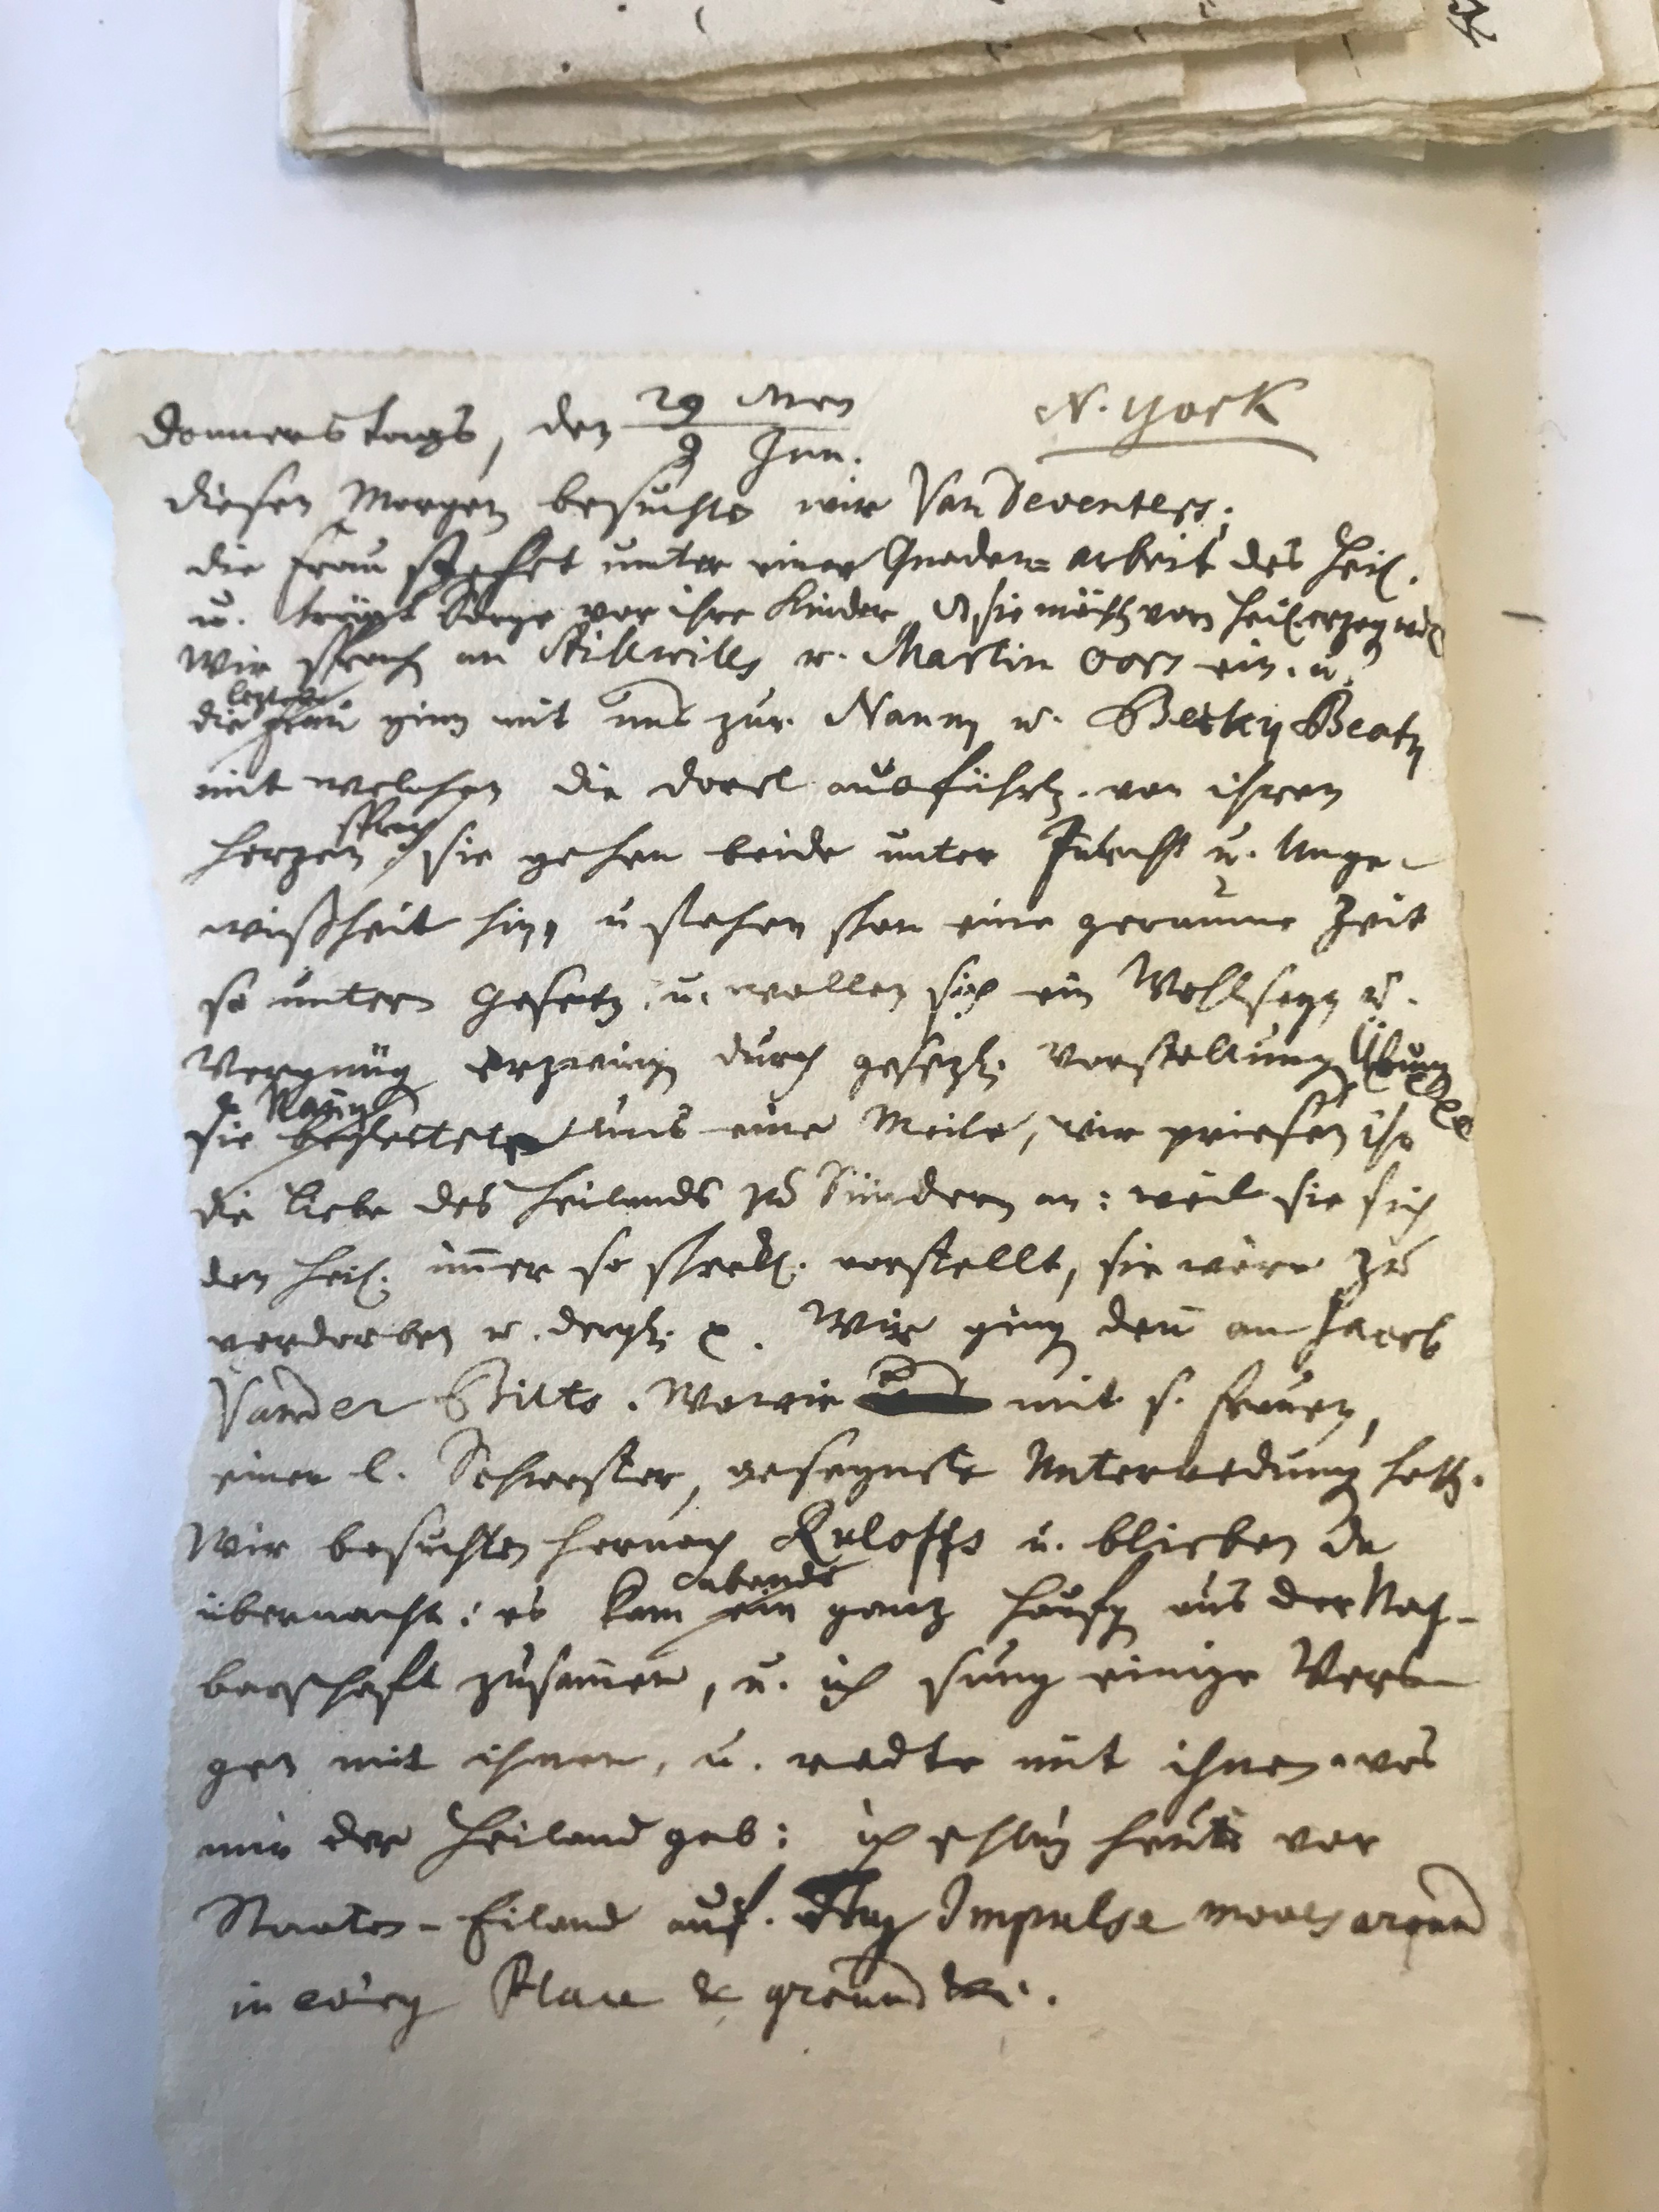 Donnerstags, den 29 May / 9 Jun. N. York
diesen Morgen besuchte wir Van Deventers;
die Frau stehet unter einer Gnaden= arbeit des Heil.
u. trägt Sorge vor ihre Kinder, sie möcht vom Heil. erzog
Wir sprach an Stillwills u. Martin ein. u.
die leztere ging mit uns zur Nanny u. Becky Beaty
mit welchen die dorel ausführl. von ihren
Herzen sprach; sie gehen beide unter Furcht u. Unge-
wißheit hin, u stehen schon eine geraume Zeit
so untern Gesetz. u. wollen sich ein Wohlseyn u.
Vergnüg erzwing durch gesezl. Vorstellung Übung
sie Nany begleitete uns eine Meile, wir priesen ihr
die Liebe des Heilands zu Sündern an: weil sie sich
den Heil. im̄er so schrekl. vorstellt, sie wäre zu
verdorben u. dergl. Wir ging den̄ an Jacob
Vander Bilts. Wo wir mit s. Frauen,
einer l. Schwester, gesegnete Unterredung hatt.
Wir besuchten hernach Roloffs u. blieben da
übernacht: es kam abends ein ganz Häufg aus der Nach-
barschaft zusam̄en, u. ich sung einige Vers-
gen mit ihnen, u. redte mit ihnen was
mir der Heiland gab: ich heute vor
Staaten-Eiland auf. Thy Impulse moves around
in every Place & ground